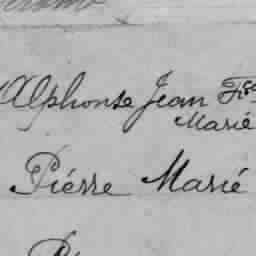 Alphonse Jean Fçs
Marié
Piérre Marié